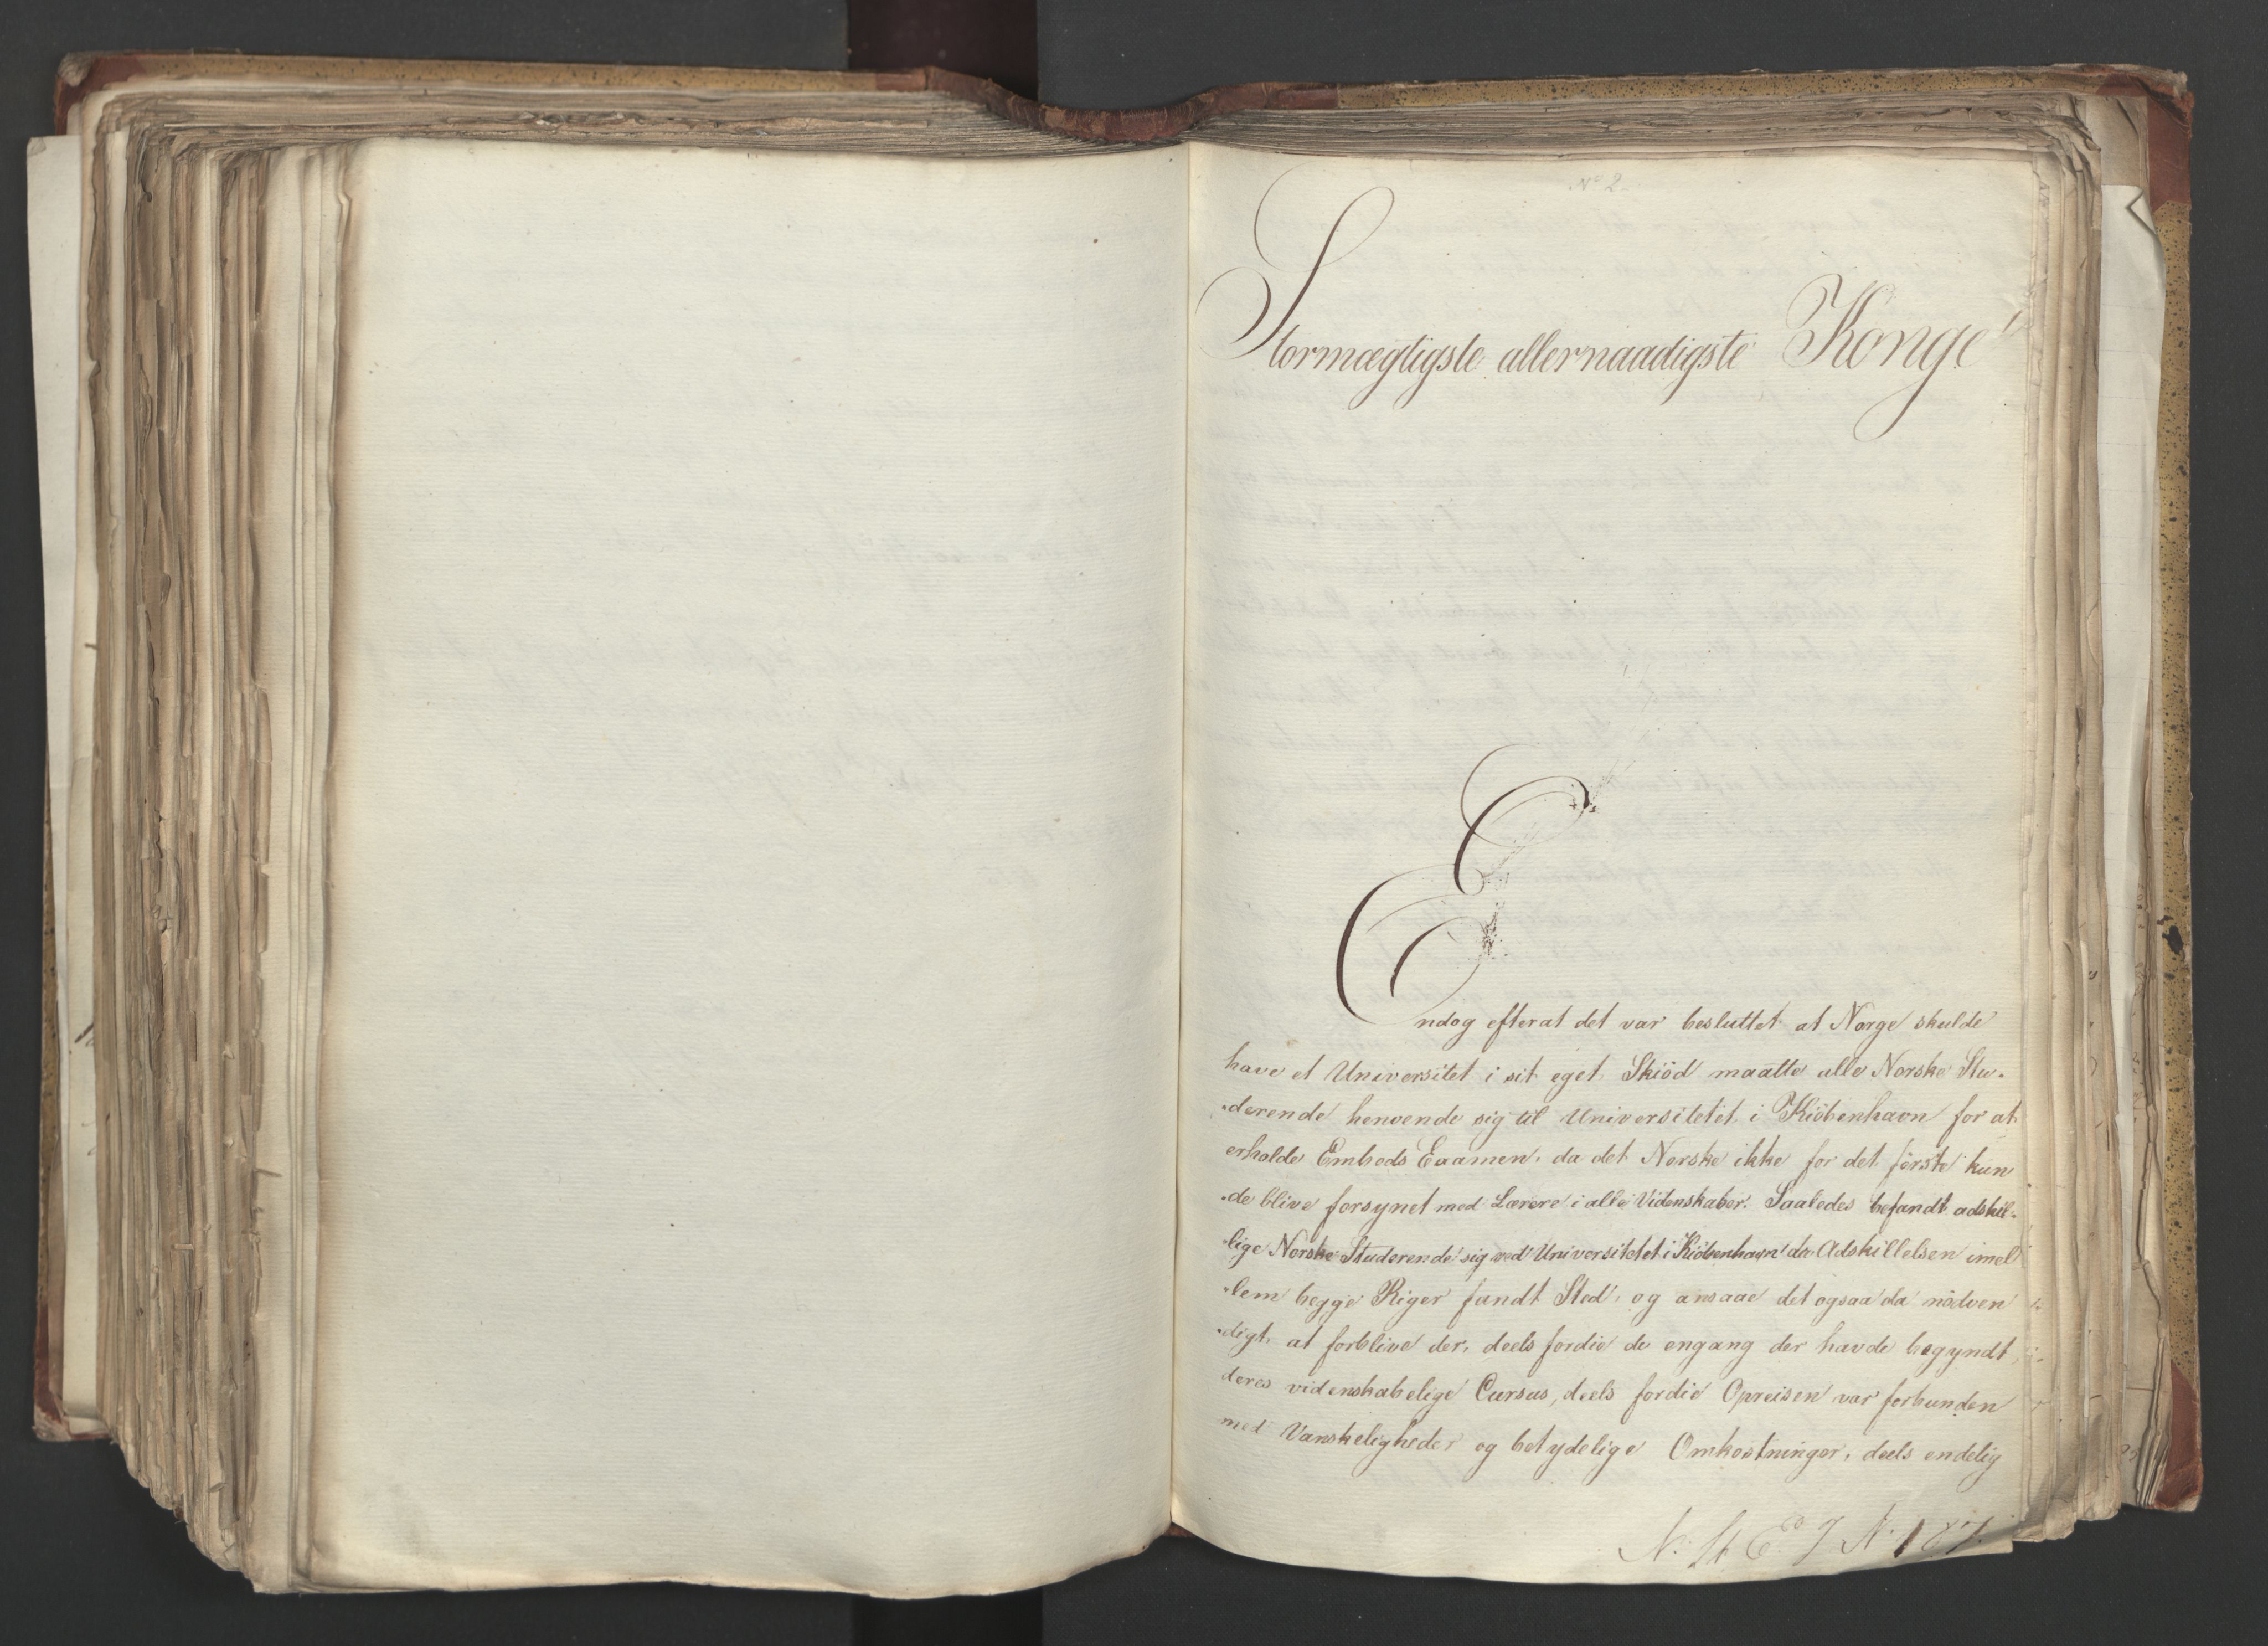 No 2.
Stormægtigste allernaadigste Konge!
Endog efterat det var besluttet at Norge skulde
have et Universitet i sit eget Skiöd maatte alle Norske Stu-
-derende henvende sig til Universitetet i Kiöbenhavn for at
erholde Embeds Examen, da det Norske ikke for det förste kun
-de blive forsynet med Lærere i alle Videnskaber. Saaledes befandt adskil-
-lige Norske Studerende sig ved Universitetet i Kiöbenhavn da Adskillelsen imel
-lem begge Riger fandt Sted, og ansaae det ogsaa da nödven
-digt at forblive der, deels fordie de engang der havde begyndt
deres videnskabelige Cursus, deels fordie Opreisen var forbunden
med Vanskeligheder og betydelige Omkostninger, deels endelig
N. St. Ex. J. N. 187.